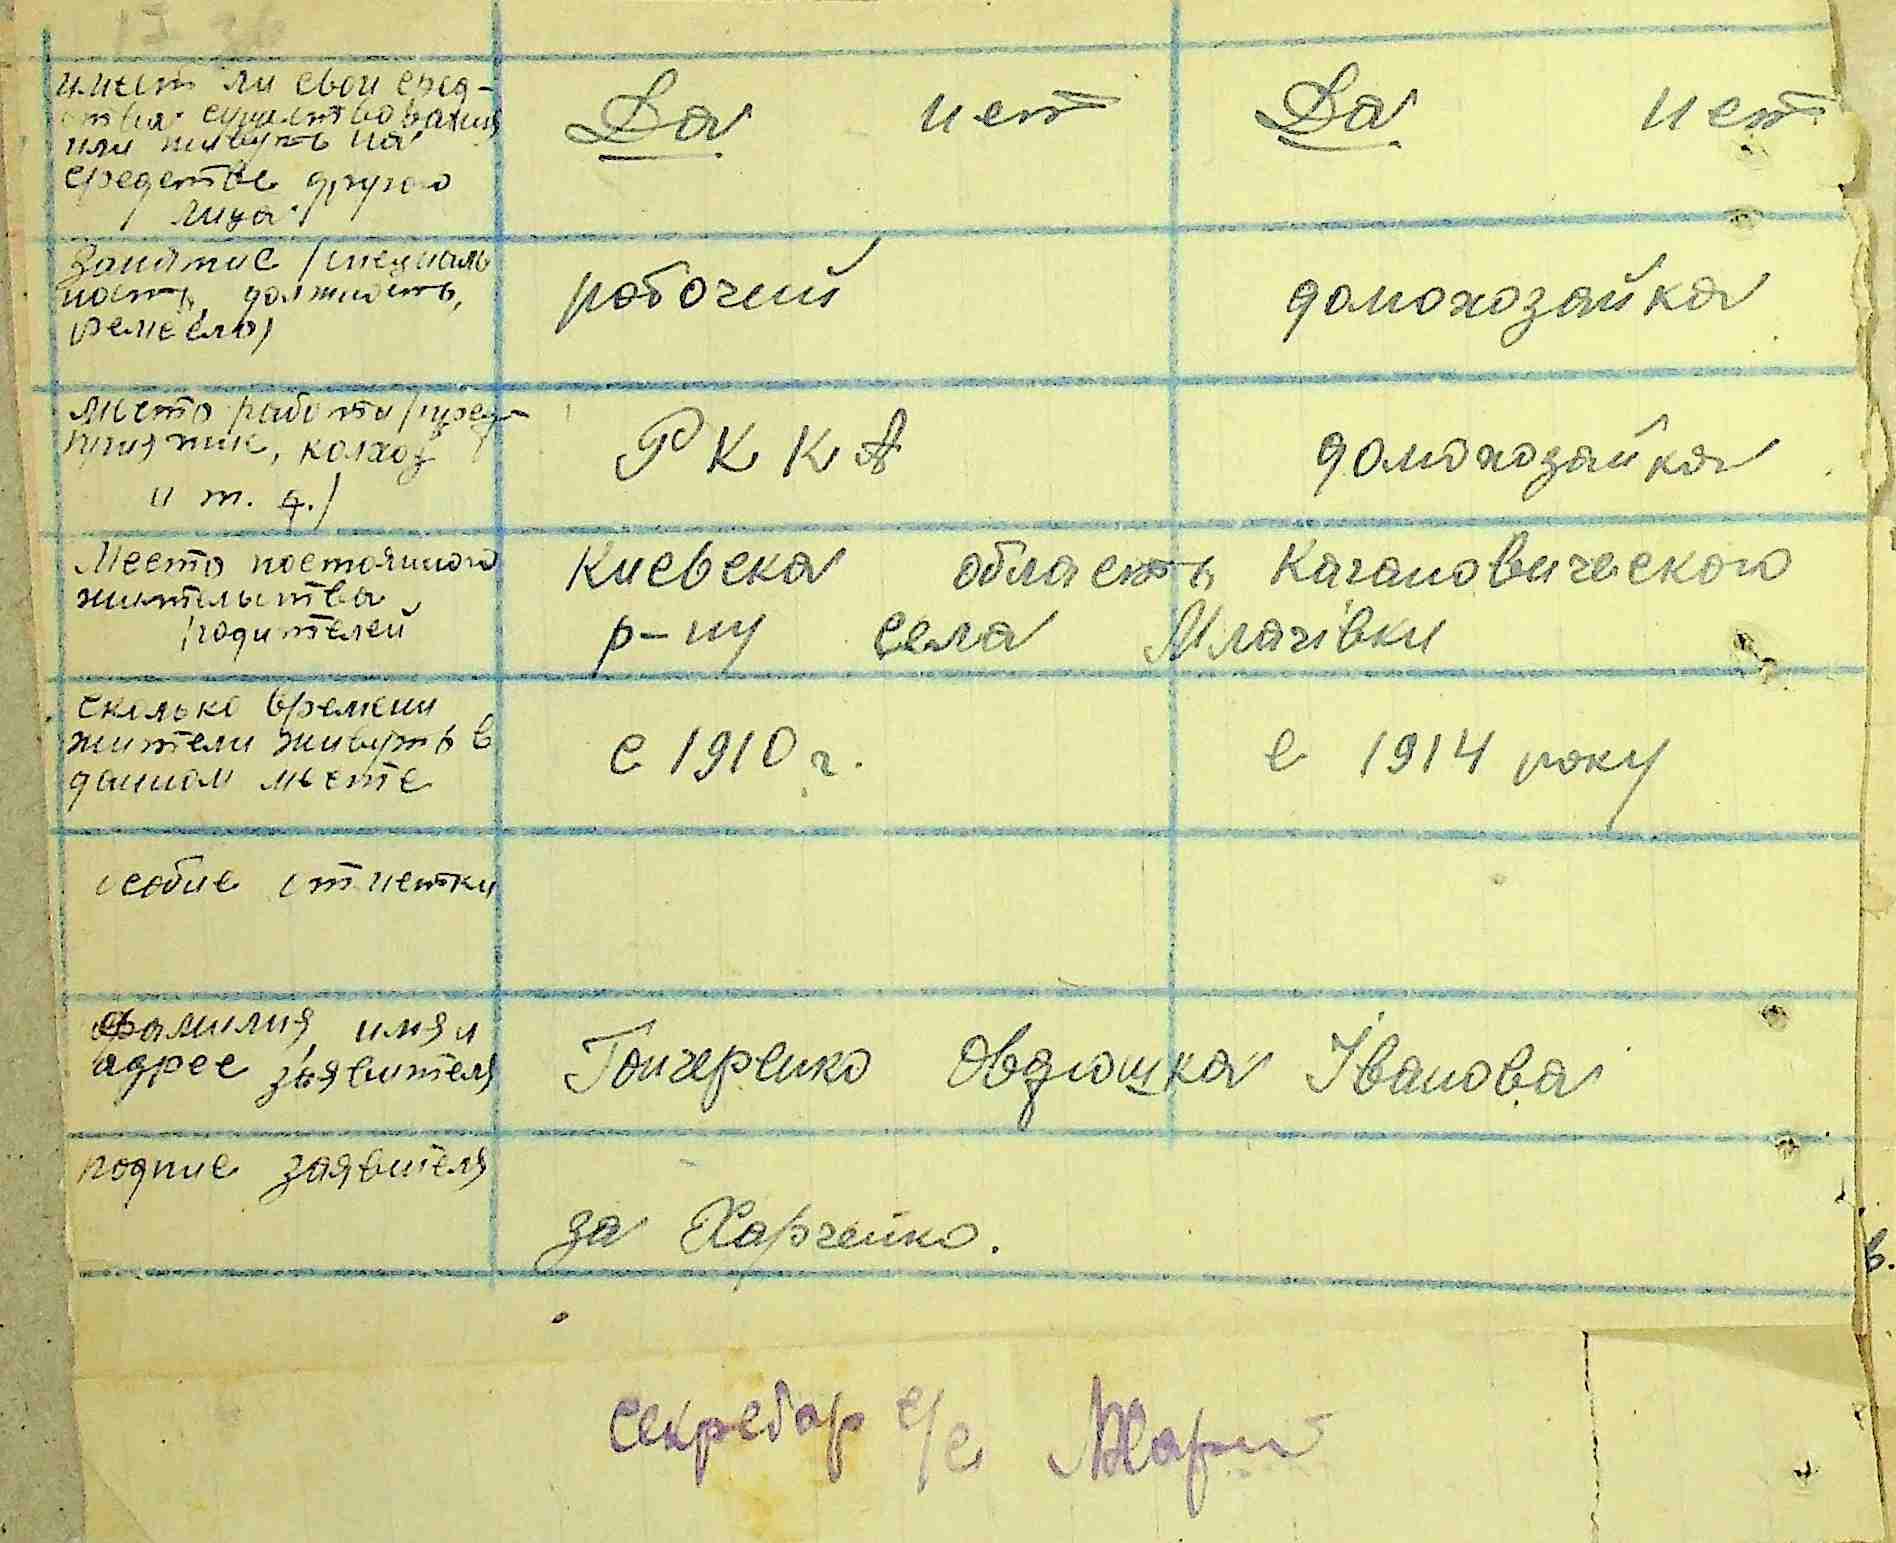 17 38
имеет ли свои сред-
ства существования
или живуть на
средстве другого
лица.
Да нет Да нет
Занятие /специаль
ность, должность,
ремесло/
рабочий домохозайка
Место работи /пред-
приятие, колхоз
и т. д./
Р К К А домохозайка
Место постоянного
жительства
/родителей
Киевска область Кагановического
р-ну села Млачівки
сколько времени
жители живуть в
данном месте
с 1910 г. с 1914 року
особие отметки
Фамилия, имя и
адрес заявителя
Гончеренко Овдюшка Іванова
подпис заявителя
за Харченко.
в.
Секретар с/с